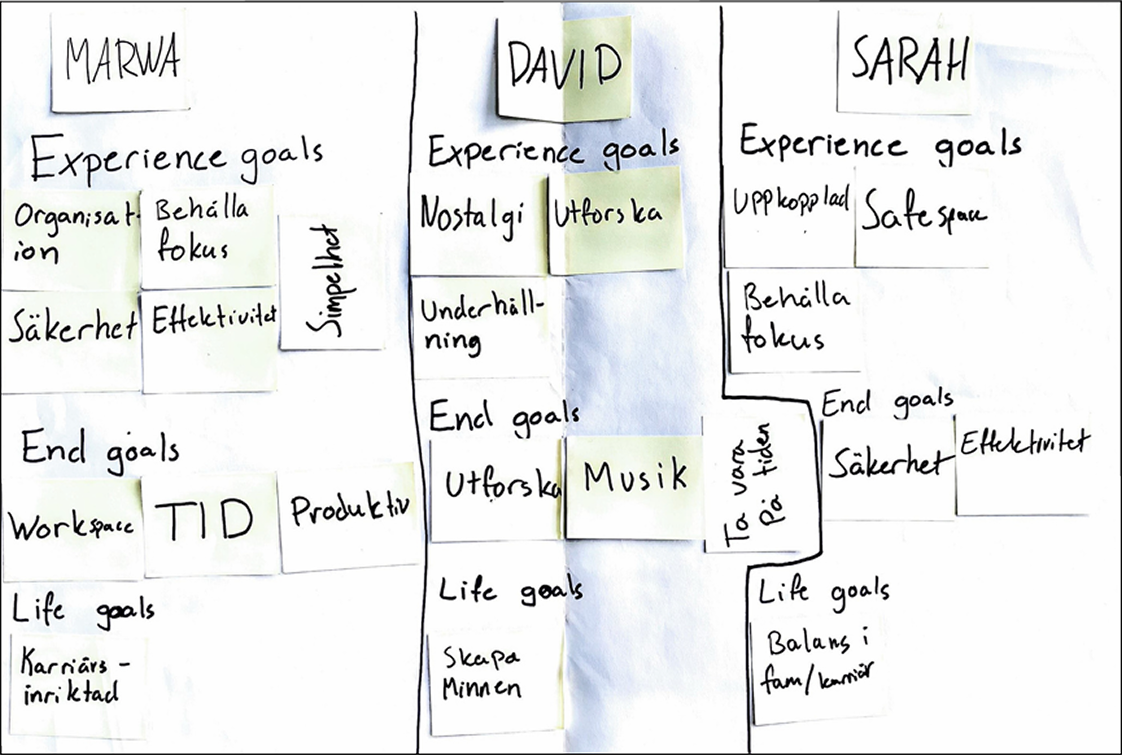 MARWA
Experience goals
Organisat-
ion
Behålla
fokus
Simpelhet
Säkerhet
Effektivitet
End goals
Workspace
TID
Produktiv
Life goals
Karriärs-
inriktad
DAVID
Experience goals
Nostalgi
Utforska
Underhåll-
ning
End goals
Utforska
Musik
Ta vara
på tiden
Life goals
Skapa
Minnen
SARAH
Experience goals
Uppkopplad
Safe space
Behålla
fokus
End goals
Säkerhet
Effektivitet
Life goals
Balans i
fam/karriär